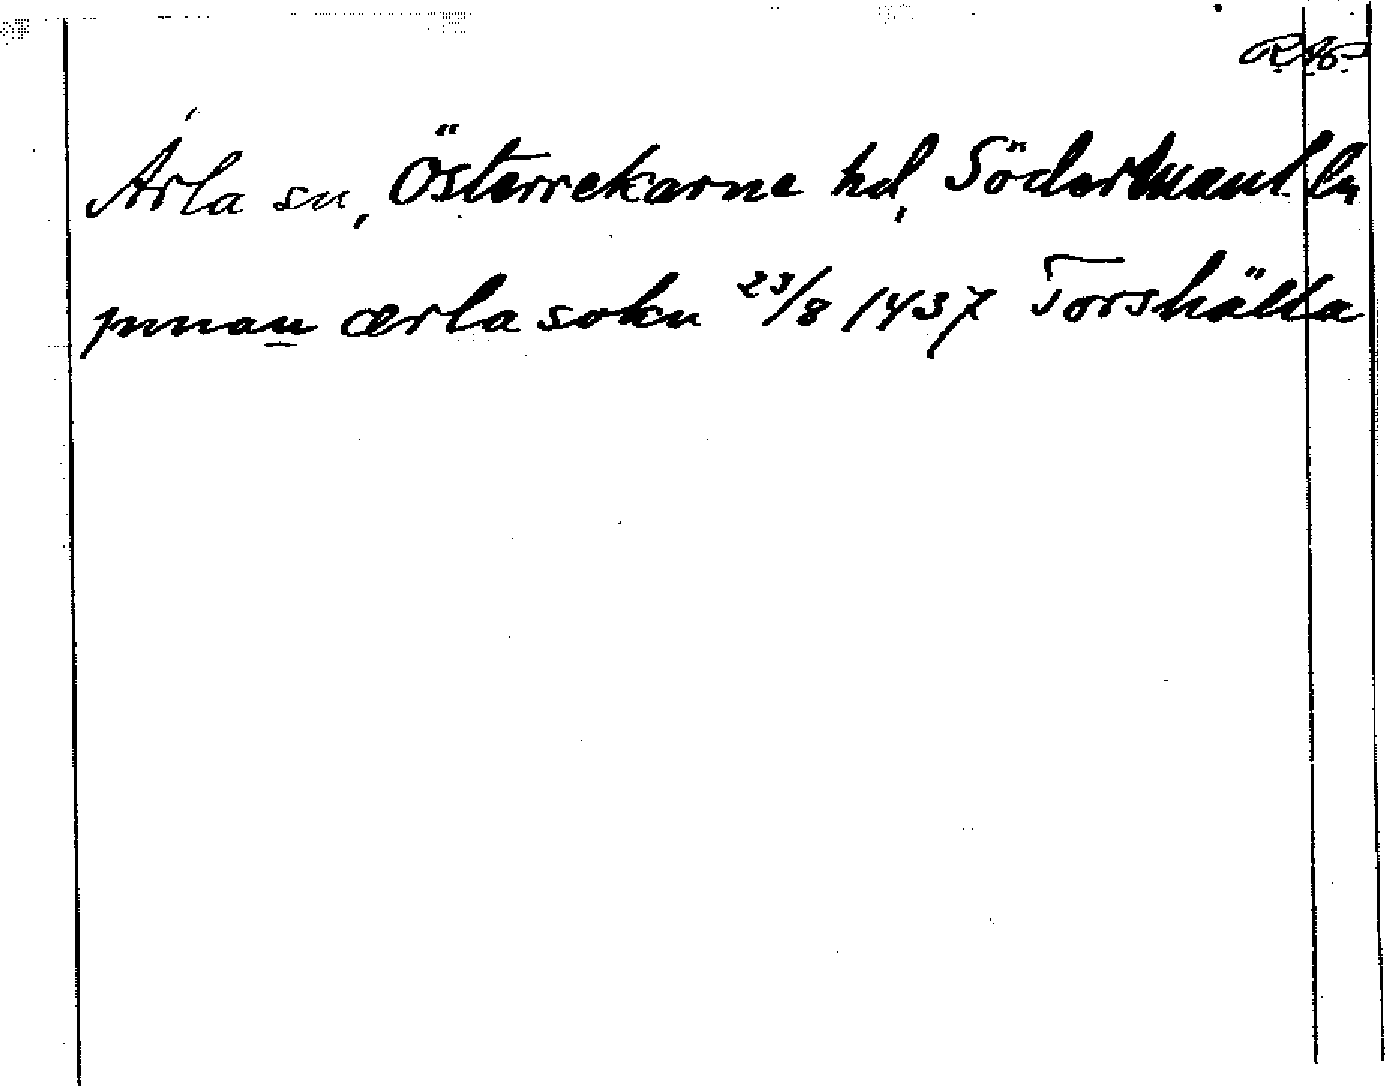 RAP
Ärla sn, Österrekarne hd, Södermanl. ln
jnnan ærla sokn 23/8 1437 Torshälla